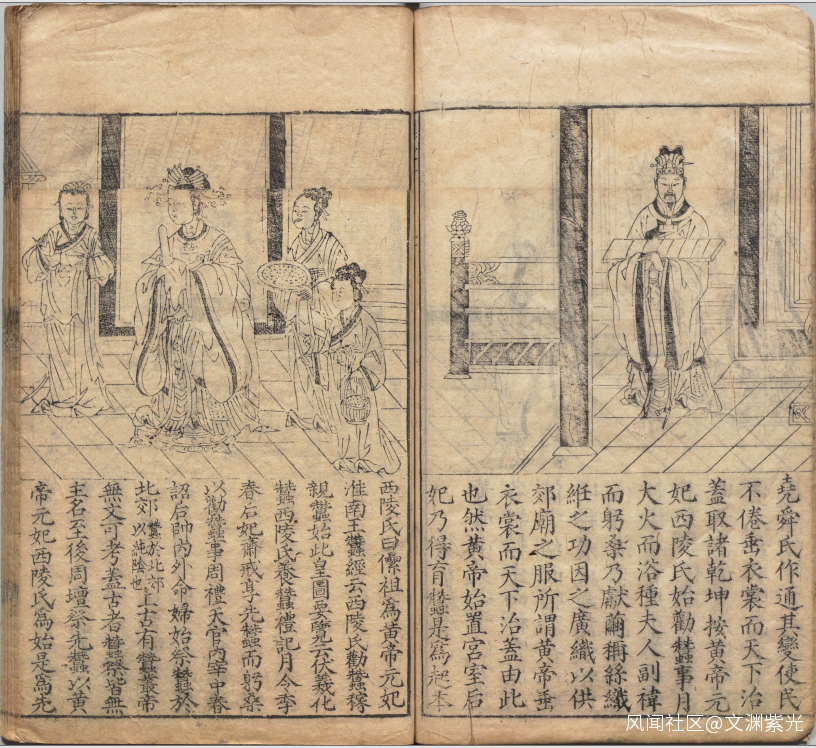 堯舜氏作通其變使民
不倦垂衣裳而天下治
蓋取諸乾坤按黃帝元
妃西陵氏始勸蠶事月
大火而浴種夫人副褘
而躬桑乃獻繭稱絲織
維之功因之廣織以供
郊廟之服所謂黃帝垂
衣裳而天下治蓋由此
也然黃帝始置宮室后
妃乃得育蠶是為起本
西陵氏曰儽祖為黃帝元妃
淮南王蠶經云西陵氏勸蠶稼
親蠶始此皇圖要覽云伏羲化
蠶西陵氏養蠶禮記月令季
春后妃齋戒享先蠶而躬桑
以勸蠶事周禮天官內宰中春
詔后帥內外命婦始祭蠶於
北郊蠶於北郊以純陰也上古有蠶叢帝
無文可考蓋古者蠶祭皆無
主名至後周壇祭先蠶以黃
帝元妃西陵氏為始是為先
风闻社区@文渊紫光